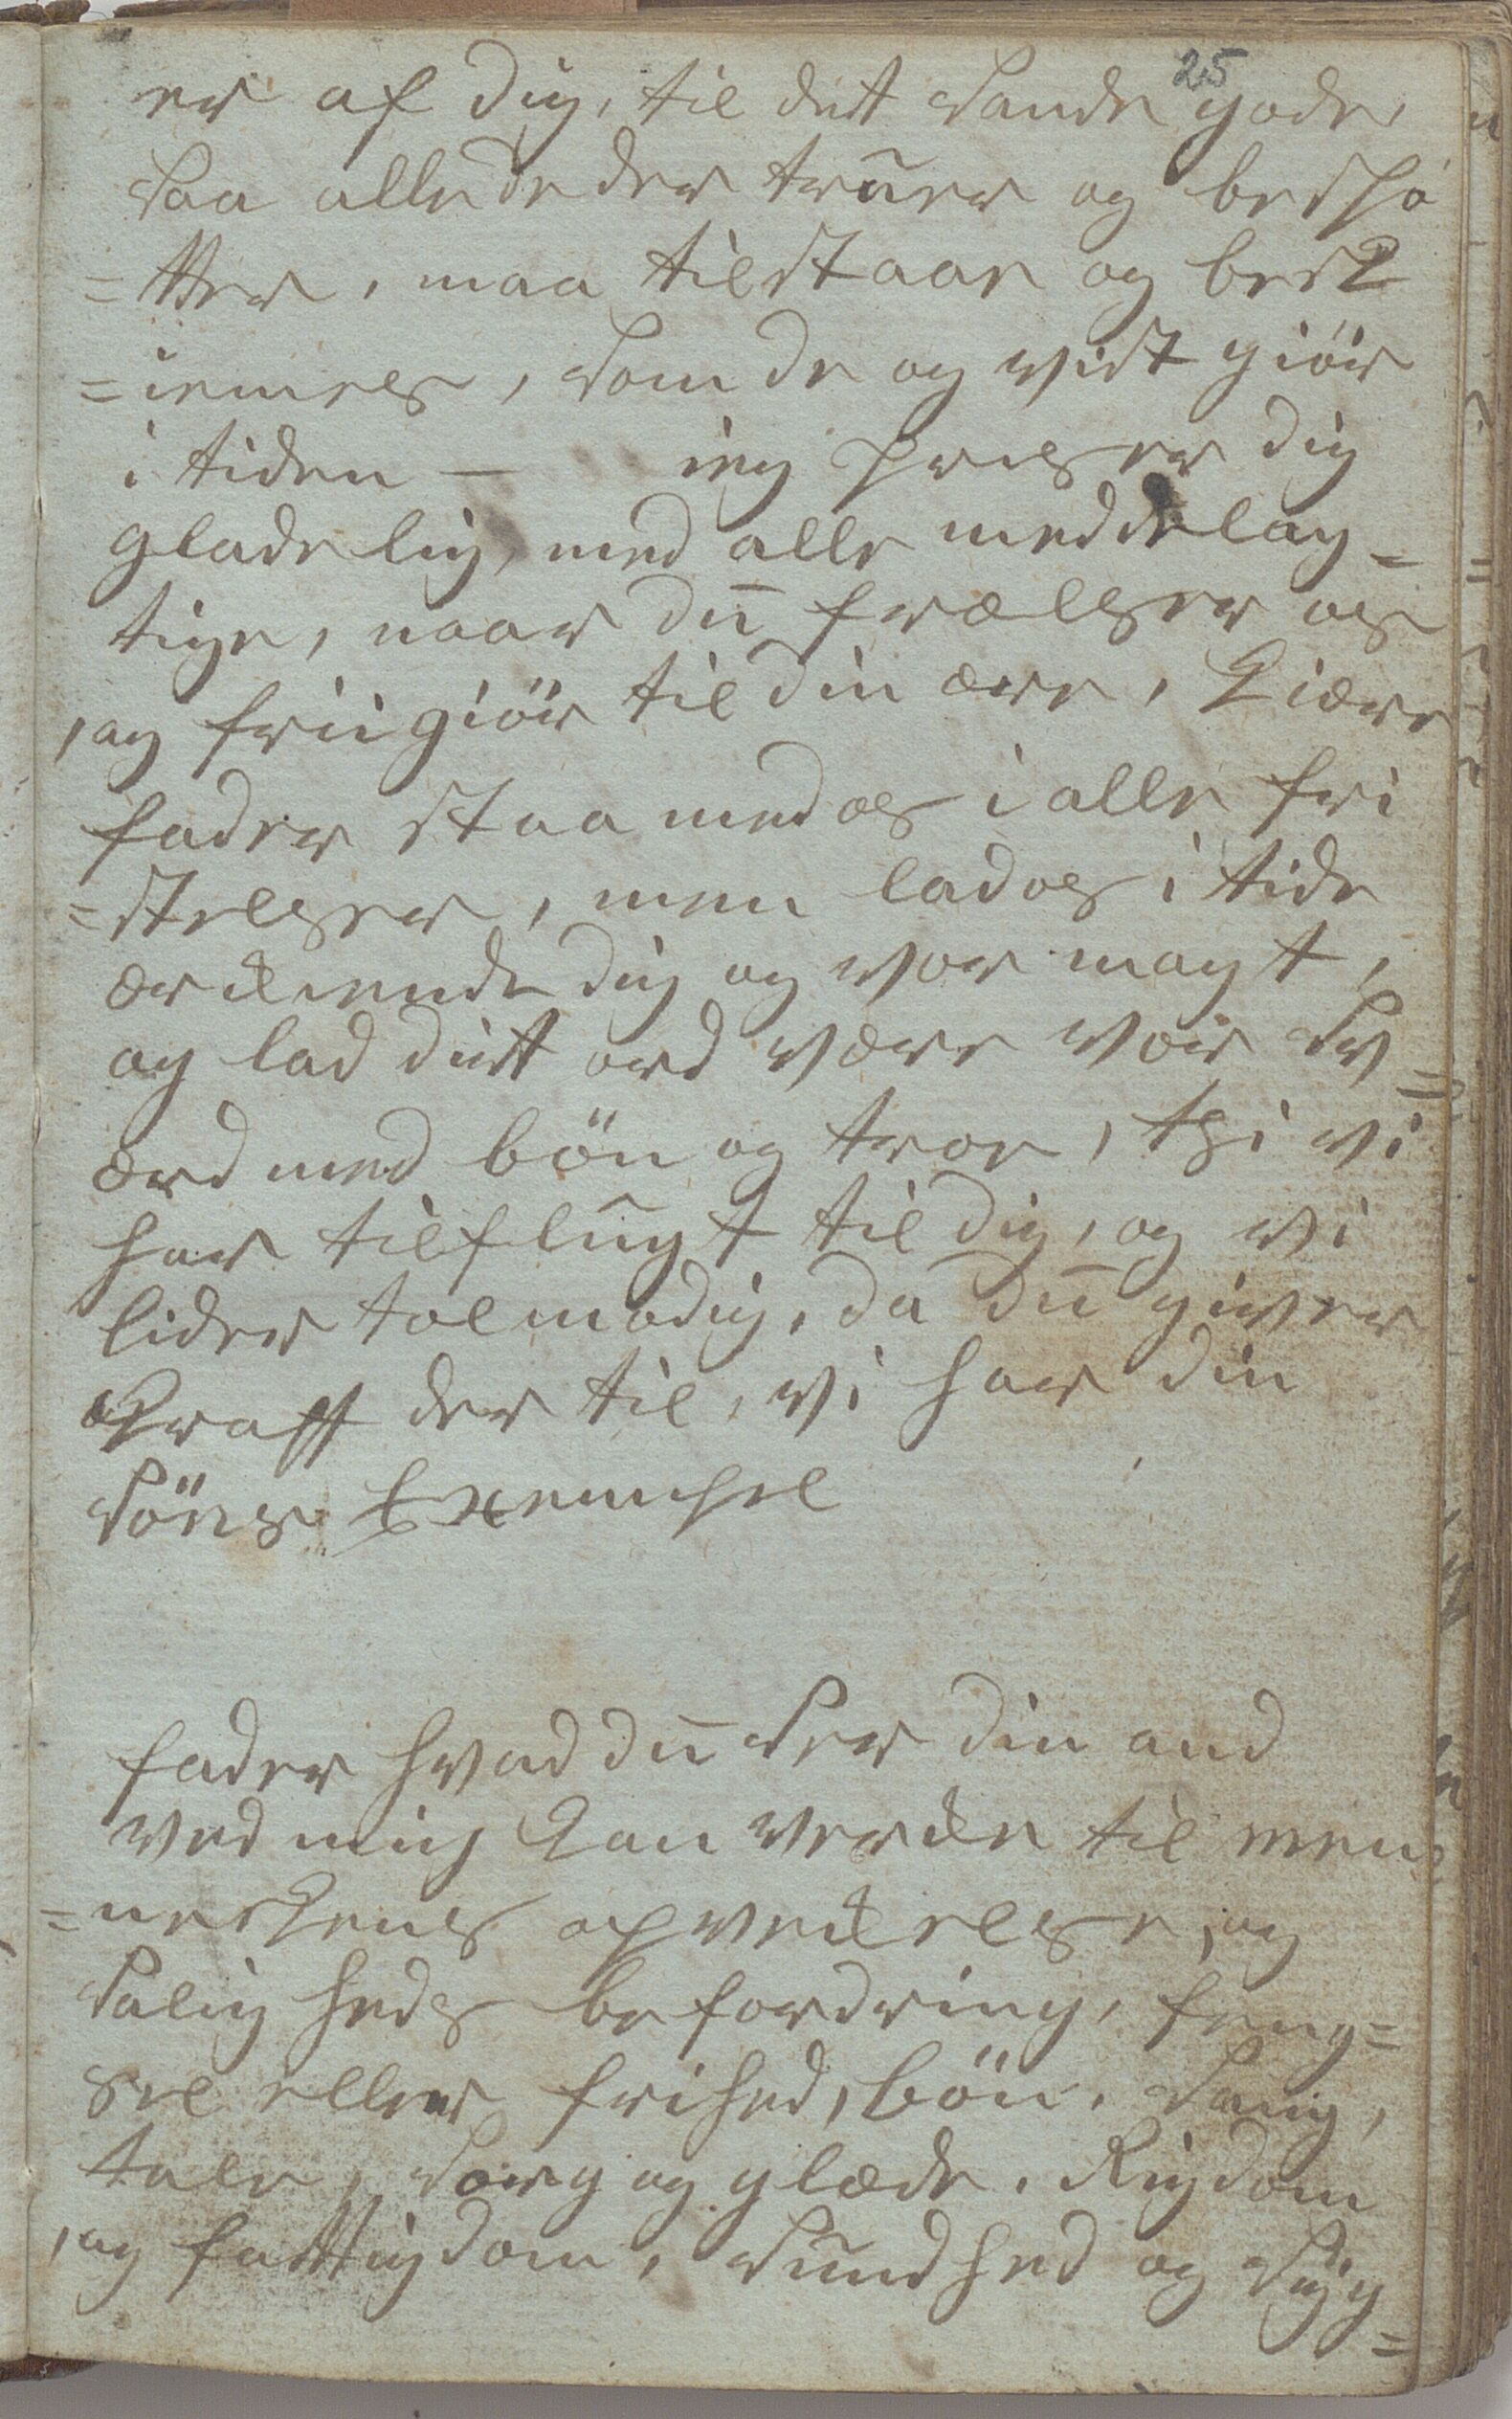 25
er af dig, til det Sande gode,
Saa alle de der truer og bespå
=tter, maa tilstaae og besk
=iemes, som de og vist giör
i tiden — ieg priser dig
gladelig, med alle meddelag=
tige, naar du frælser os
, og friigiör til din ære, kiære
fader staa med os i alle fri
=stelser, men lad os i tide
ærkiende dig og vor magt,
og lad ditt ord være vor Sv=
ærd med bön og troe, thi vi
har tilflugt til dig, og vi
lider tolmodig, da du giver
kraft der til, vi har din
Söns Exempel
fader hvad du Ser din and
ved mig kan verke til men
=neskens opvekelse, og
Salig heds befordring, feng=
sel eller frihed, bön, Sang,
tale, Sorg og glæde, Rigdom
, og fattigdom, Sundhed og Syg=